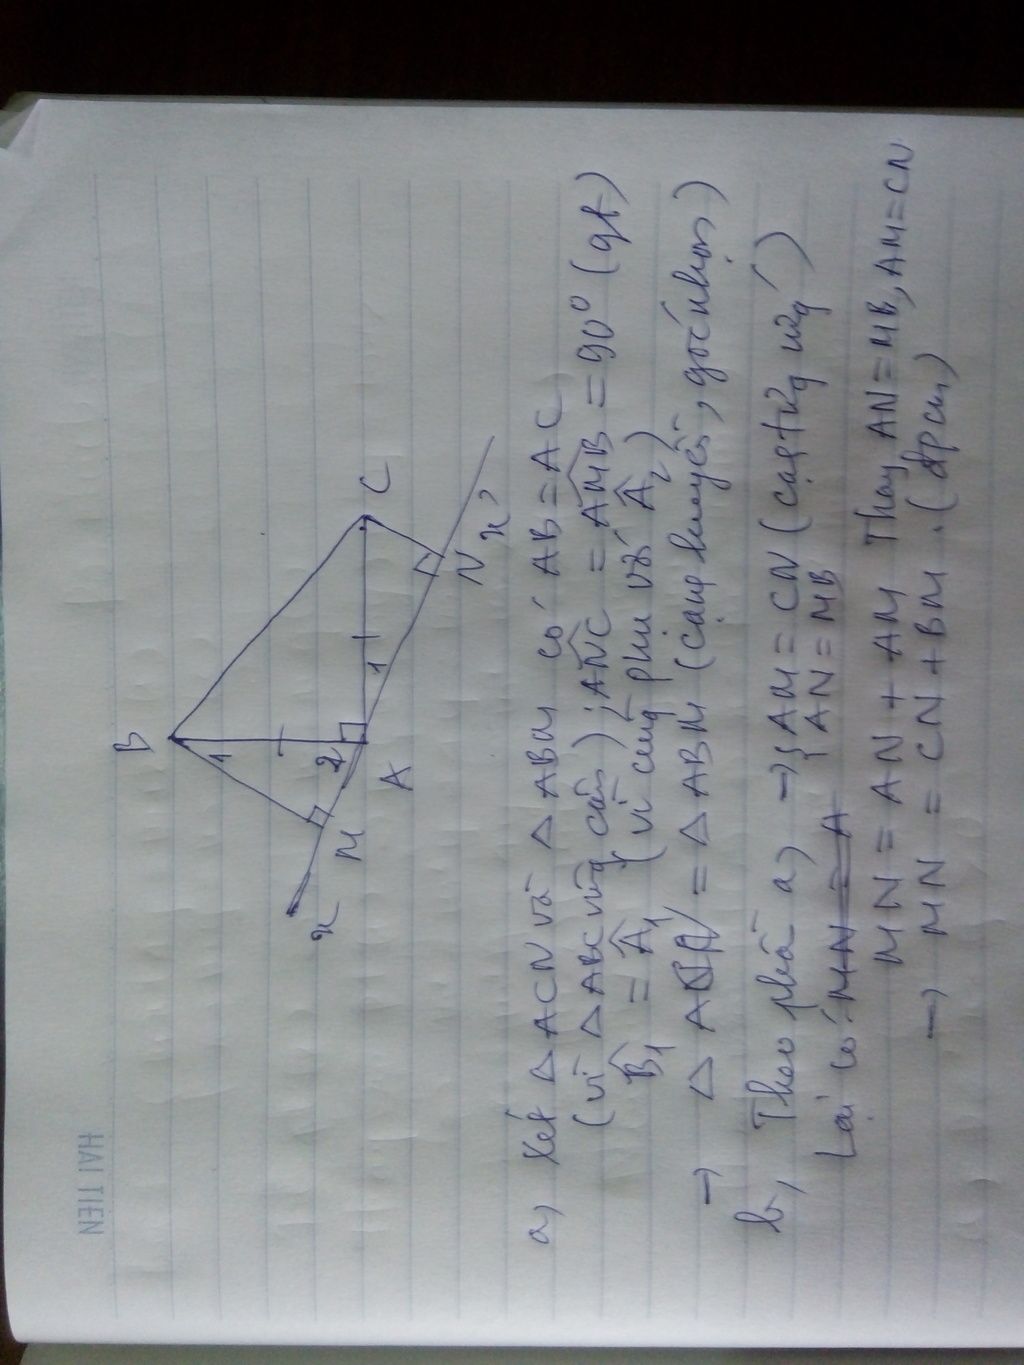 HẢI TIẾN
B
1
2
1
C
M
x
A
N
x'
a, Xét △ ACN và △ ABM có AB = AC
(vì △ ABC vuông cân) ; ANC = AMB = 90° (gt)
B1 = A1 (vì cùng phụ với A2)
→ △ = △ ABM (cạnh huyền, góc nhọn)
b, Theo phần a, → { AM = CN (cạp từng ứng)
AN = MB
Lại có: MN = A
MN = AN + AM Thay AN = MB, AM = CN
→ MN = CN + BM. (đpcm)